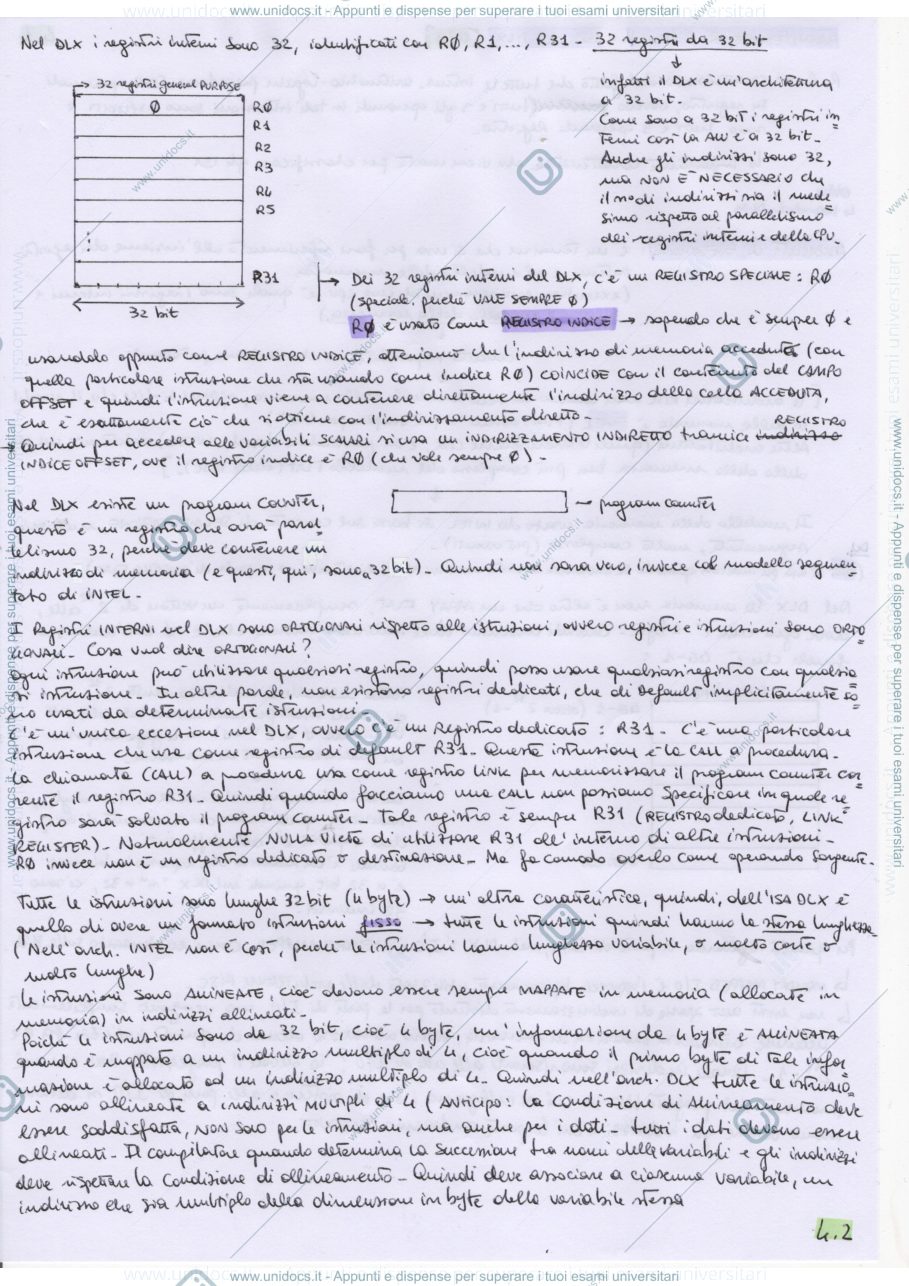 www.unidocs.it - Appunti e dispense per superare i tuoi esami universitari
Nel DLX i registri interni sono 32, identificati con RØ, R1, ..., R31 - 32 registri da 32 bit
→ 32 registri general PURPOSE
Ø RØ
R1
R2
R3
R4
R5
R31
32 bit
infatti il DLX è un'architettura
a 32 bit.
Come sono a 32 bit i registri in
terni così la ALU è a 32 bit.
Anche gli indirizzi sono 32,
ma NON È NECESSARIO che
il n° di indirizzi sia il mede
simo rispetto al parallelismo
dei registri interni e della CPU.
→ Dei 32 registri interni del DLX, c'è un REGISTRO SPECIALE : RØ
(speciale perché VALE SEMPRE Ø)
RØ è usato come REGISTRO INDICE → sapendo che è sempre Ø e
usandolo appunto come REGISTRO INDICE, otteniamo che l'indirizzo di memoria acceduto (con
quella particolare istruzione che sta usando come indice RØ) COINCIDE con il contenuto del CAMPO
OFFSET e quindi l'istruzione viene a contenere direttamente l'indirizzo della cella ACCEDUTA,
che è esattamente ciò che si ottiene con l'indirizzamento diretto -
→ Quindi per accedere alle variabili SCALARI si usa un INDIRIZZAMENTO INDIRETTO tramite indirizzo REGISTRO
INDICE OFFSET, ove il registro indice è RØ (che vale sempre Ø) -
Nel DLX esiste un program counter,
questo è un registro che avrà paral
lelismo 32, perché deve contenere un
→ program counter
indirizzo di memoria (e questi, qui, sono a 32 bit) - Quindi non sarà vero, invece col modello segmen
tato di INTEL -
I Registri INTERNI nel DLX sono ORTOGONALI rispetto alle istruzioni, ovvero registri e istruzioni sono ORTO
GONALI - Cosa vuol dire ORTOGONALI ?
Ogni istruzione può utilizzare qualsiasi registro, quindi posso usare qualsiasi registro con qualsia
si istruzione - In altre parole, non esistono registri dedicati, che di Default implicitamente so
no usati da determinate istruzioni -
C'è un'unica eccezione nel DLX, ovvero c'è un Registro dedicato : R31 - C'è una particolare
istruzione che usa come registro di default R31 - Questa istruzione è la CALL a procedura -
La chiamata (CALL) a procedura usa come registro Link per memorizzare il program counter cor
rente il registro R31 - Quindi quando facciamo una CALL non possiamo specificare in quale re
gistro sarà salvato il program counter - Tale registro è sempre R31 (REGISTRO dedicato, LINK
REGISTER) - Naturalmente NULLA vieta di utilizzare R31 all'interno di altre istruzioni -
RØ invece non è un registro dedicato o destinazione - Ma fa comodo averlo come operando sorgente -
Tutte le istruzioni sono lunghe 32 bit (4 byte) → un'altra caratteristica, quindi, dell'ISA DLX è
quello di avere un formato istruzioni fisso → tutte le istruzioni quindi hanno la stessa lunghezza
(Nell'arch. INTEL non è così, perché le istruzioni hanno lunghezza variabile, o molto corte o
molto lunghe)
Le istruzioni sono ALLINEATE, cioè devono essere sempre MAPPATE in memoria (allocate in
memoria) in indirizzi allineati -
Poiché le istruzioni sono da 32 bit, cioè 4 byte, un'informazione da 4 byte è ALLINEATA
quando è mappata a un indirizzo multiplo di 4, cioè quando il primo byte di tale infor
mazione è allocato ad un indirizzo multiplo di 4 - Quindi nell'arch. DLX tutte le istruzio
ni sono allineate a indirizzi MULTIPLI di 4 (ANTICIPO : la condizione di Allineamento deve
essere soddisfatta, NON SOLO per le istruzioni, ma anche per i dati - tutti i dati devono essere
allineati - Il compilatore quando determina la successione tra nomi delle variabili e gli indirizzi
deve rispettare la condizione di allineamento - Quindi deve associare a ciascuna variabile, un
indirizzo che sia multiplo della dimensione in byte della variabile stessa
4.2
www.unidocs.it - Appunti e dispense per superare i tuoi esami universitari